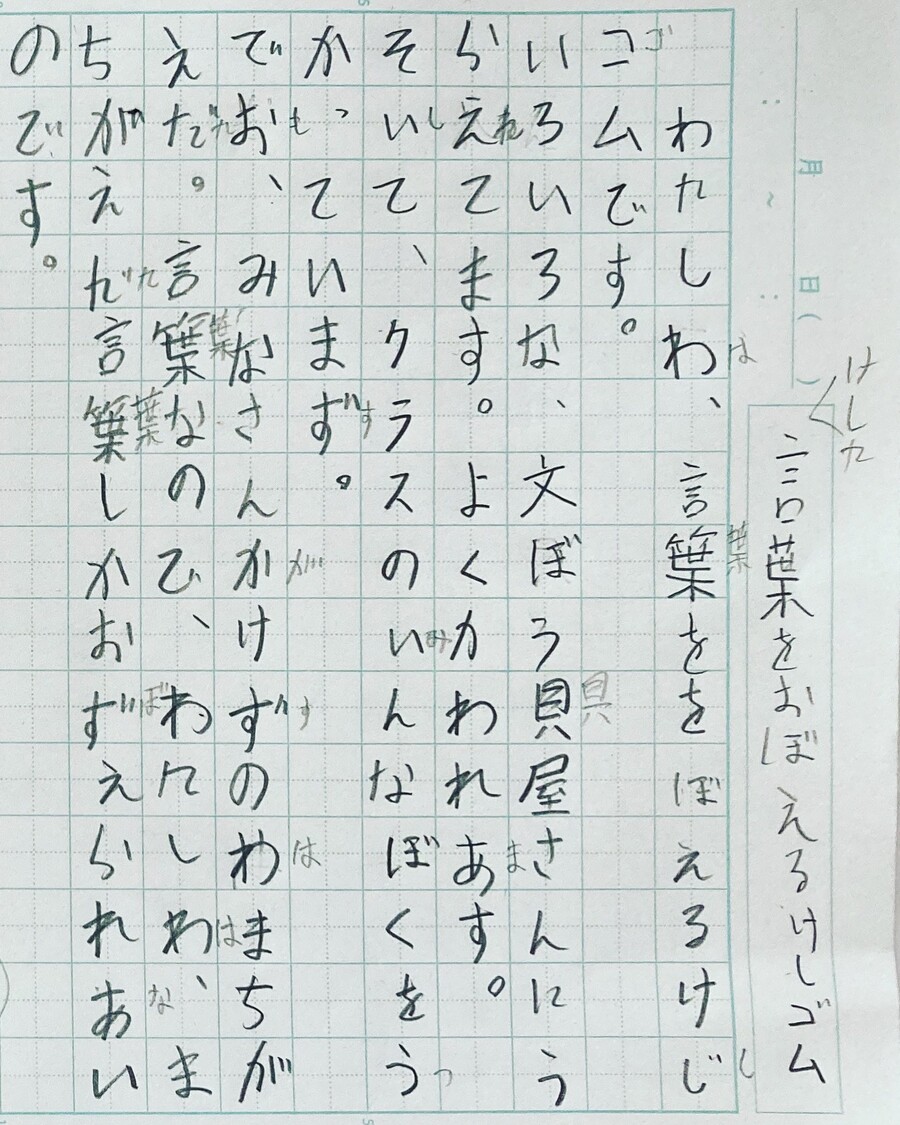 月 日( )
けした
言葉をおぼえるけしゴム
わたしわ、言葉ををぼえるけじ
は 葉 し
コムです。
ゴ
いろいろな、文ぼう貝屋さんにう
具
らえてます。よくカわれあす。
れ ま
そいて、クラスのいんなぼくをう
し み っ
かっていまず。
す
でお、みなさんかけずのわまちが
も が す は
えだ。言葉なので、わたしわ、ま
た 葉 は
ちがえだ言葉しかおずえられあい
た 葉 ぼ な
のです。